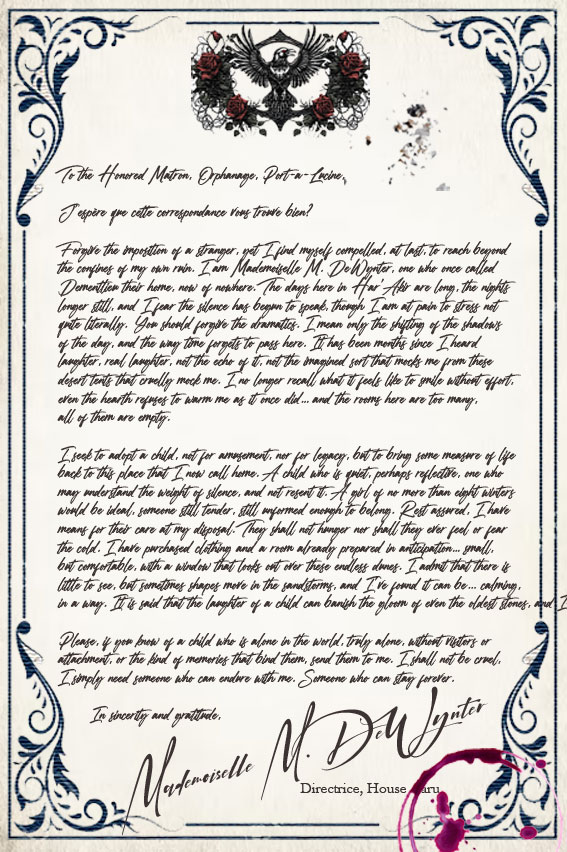 To the Honored Matron, Orphanage, Port-a-Lucine,
J'espère que cette correspondance vous trouve bien?
Forgive the imposition of a stranger, yet I find myself compelled, at last, to reach beyond
the confines of my own ruin. I am Mademoiselle M. DeWynter, one who once called
Dementlieu their home, now of nowhere. The days here in Har Akir are long, the nights
longer still, and I fear the silence has begun to speak, though I am at pain to stress not
quite literally. You should forgive the dramatics. I mean only the shifting of the shadows
of the day, and the way time forgets to pass here. It has been months since I heard
laughter, real laughter, not the echo of it, not the imagined sort that mocks me from these
desert tents that cruelly mock me. I no longer recall what it feels like to smile without effort,
even the hearth refuses to warm me as it once did... and the rooms here are too many,
all of them are empty.
I seek to adopt a child, not for amusement, nor for legacy, but to bring some measure of life
back to this place that I now call home. A child who is quiet, perhaps reflective, one who
may understand the weight of silence, and not resent it. A girl of no more than eight winters
would be ideal, someone still tender, still unformed enough to belong. Rest assured, I have
means for their care at my disposal. They shall not hunger nor shall they ever feel or fear
the cold. I have purchased clothing and a room already prepared in anticipation... small,
but comfortable, with a window that looks out over these endless dunes. I admit that there is
little to see, but sometimes shapes move in the sandstorms, and I've found it can be... calming,
in a way. It is said that the laughter of a child can banish the gloom of even the oldest stones, and I
Please, if you know of a child who is alone in the world, truly alone, without visitors or
attachment, or the kind of memories that bind them, send them to me. I shall not be cruel,
I simply need someone who can endure with me. Someone who can stay forever.
In sincerity and gratitude,
Mademoiselle M. DeWynter
Directrice, House aru